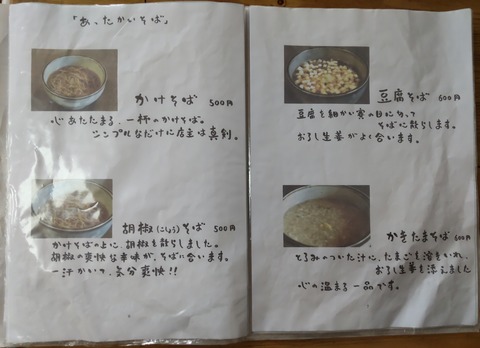 「あったかいそば」
かけそば 500円
心あたたまる、一杯のかけそば。
シンプルなだけに店主は真剣。
胡椒(こしょう)そば 500円
かけそばの上に、胡椒を散らしました。
胡椒の爽快な辛味が、そばに合います。
一汗かいて、気分爽快!!
豆腐そば 600円
豆腐を細かい賽の目に切って
そばに散らします。
おろし生姜がよく合います。
かきたまそば 600円
とろみのついた汁に、たまごを溶きいれ、
おろし生姜を添えました
心の温まる一品です。